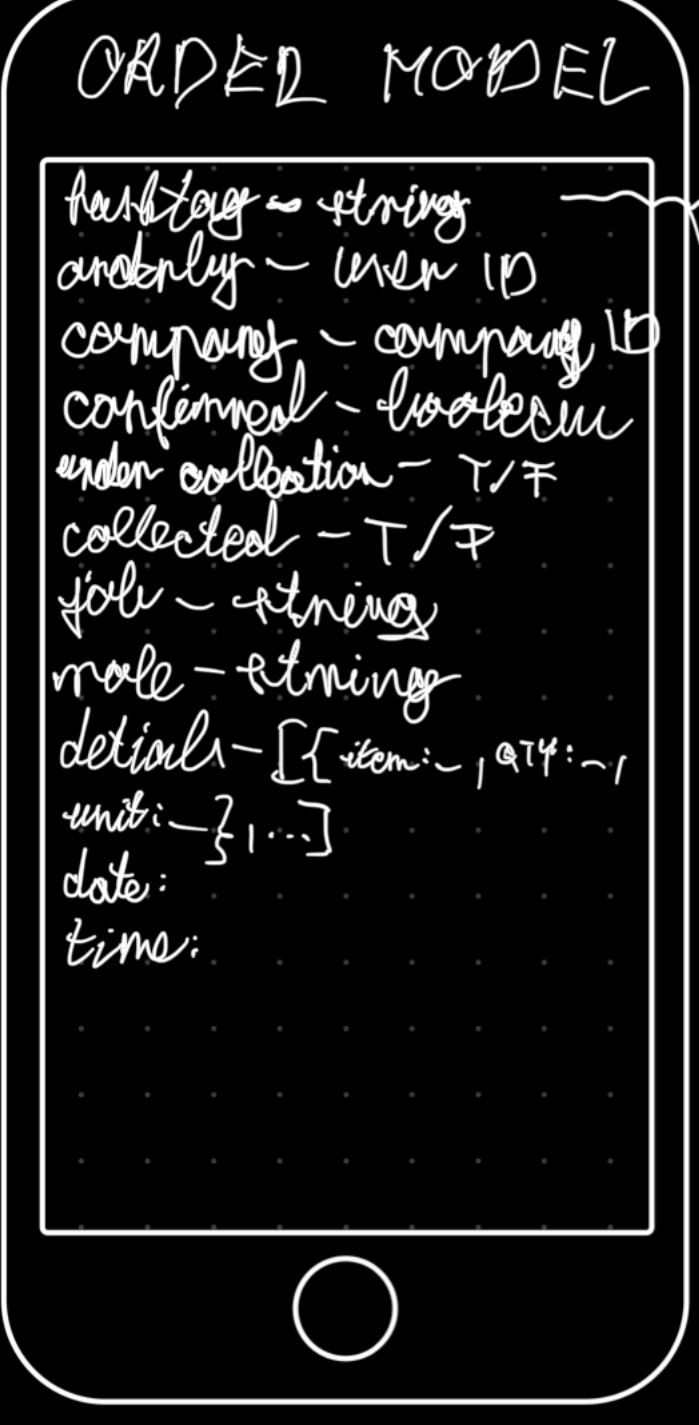 ORDER MODEL
hashtag - string
orderby - user ID
company - company ID
confirmed - boolean
under collection - T/F
collected - T/F
job - string
note - string
detials - [{item:-, QTY:-,
unit:-}, ...]
date:
time: